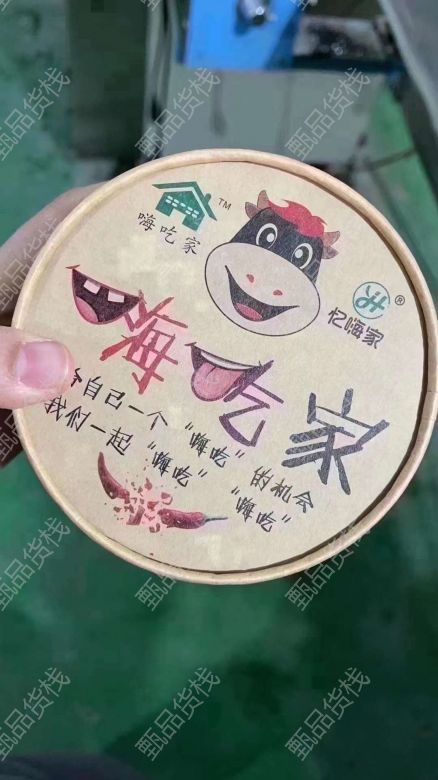 嗨吃家 TM
忆嗨家 ®
嗨吃家
给自己一个“嗨吃”的机会
我们一起“嗨吃”“嗨吃”
甄品货栈
甄品货栈
甄品货栈
甄品货栈
甄品货栈
甄品货栈
甄品货栈
甄品货栈
甄品货栈
甄品货栈
甄品货栈
甄品货栈